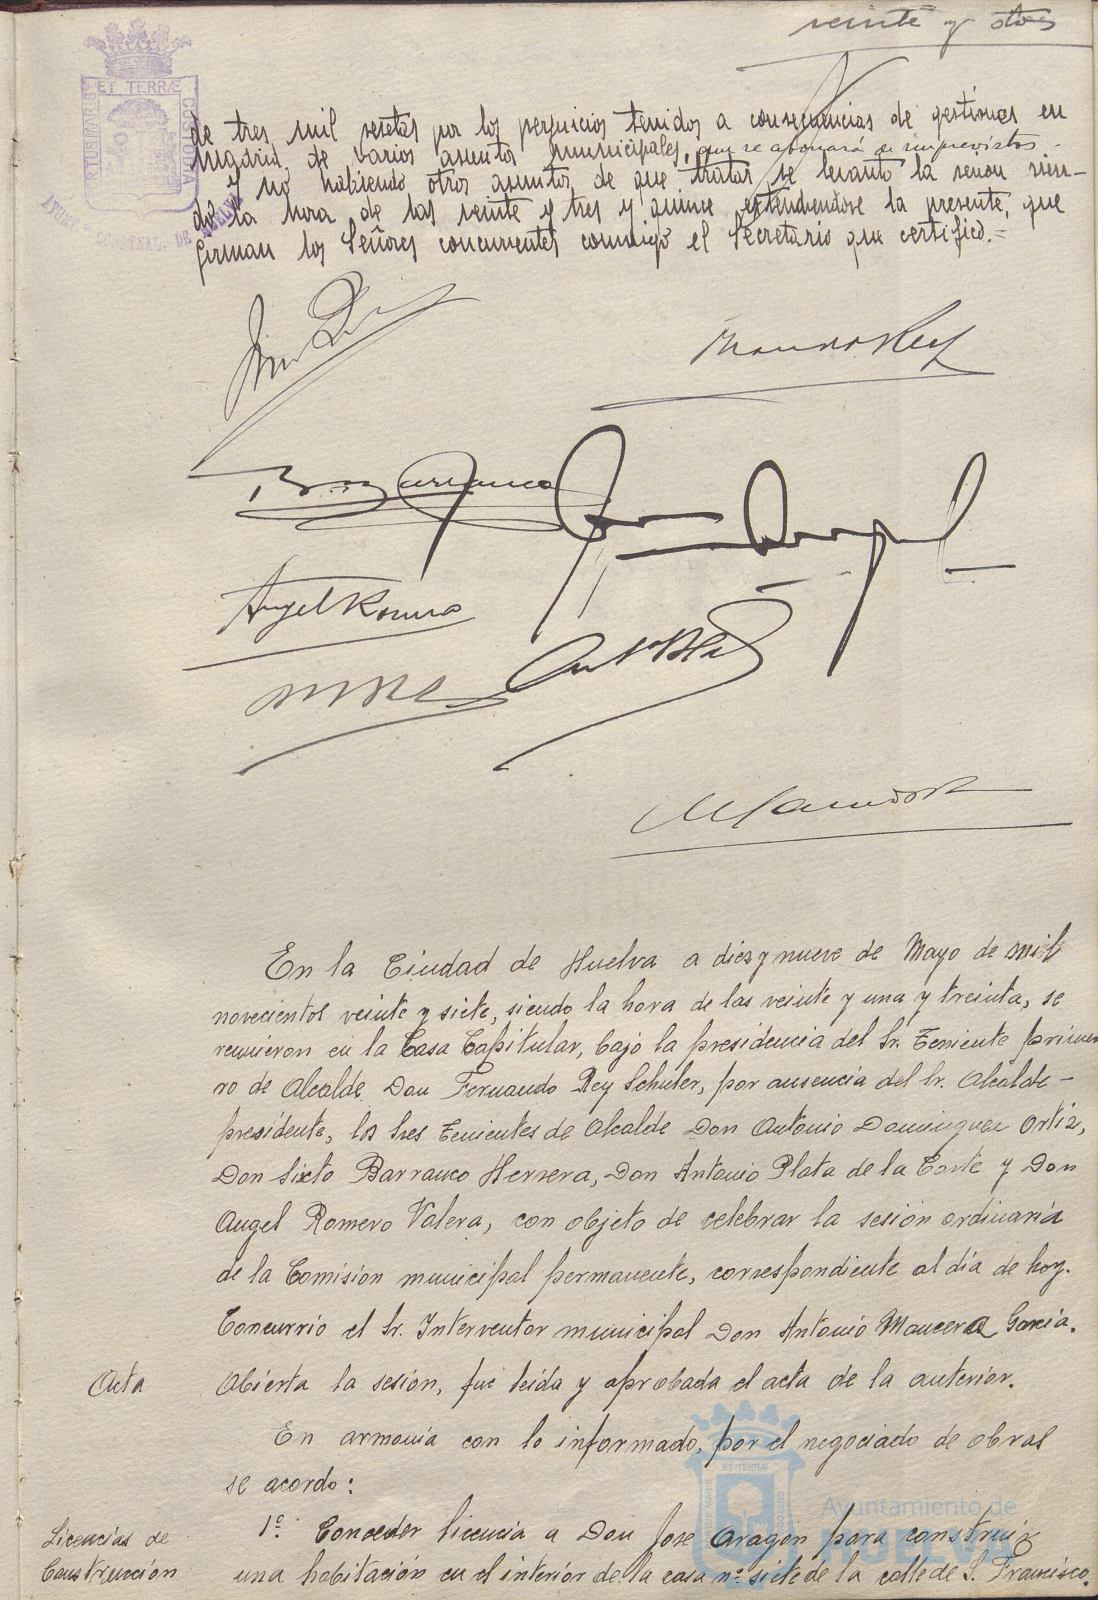 veinte y dos
ET TERRÆ
CUSTODIA
de tres mil pesetas por los perjuicios tenidos a consecuencias de gestiones en
Madrid, de varios asuntos municipales, que se abonará a imprevistos.
Y no habiendo otros asuntos de que tratar se levantó la sesión sien-
do la hora de las veinte y tres y quince extendiendose la presente, que
firman los Señores concurrentes conmigo el Secretario que certifico.=
Angel Romero
En la Ciudad de Huelva a diez y nueve de Mayo de mil
novecientos veinte y siete, siendo la hora de las veinte y una y treinta, se
reunieron en la Casa Capitular, bajo la presidencia del Sr. Teniente prime
ro de Alcalde Don Fernando Rey Schuler, por ausencia del Sr. Alcalde-
presidente, los Sres Tenientes de Alcalde Don Antonio Dominguez Ortiz,
Don Sixto Barranco Herrera, Don Antonio Plata de la Corte y Don
Angel Romero Valera, con objeto de celebrar la sesión ordinaria
de la Comisión municipal permanente, correspondiente al día de hoy.
Concurrio el Sr. Interventor municipal Don Antonio Mancera Garcia.
Acta
Abierta la sesión, fué leida y aprobada el acta de la anterior.
En armonia con lo informado, por el negociado de obras
se acordo:
Licencias de
Construcción
1º. Conceder licencia a Don Jose Aragón para construir
una habitación en el interior de la casa nº siete de la calle de S. Francisco.
Ayuntamiento de
HUELVA